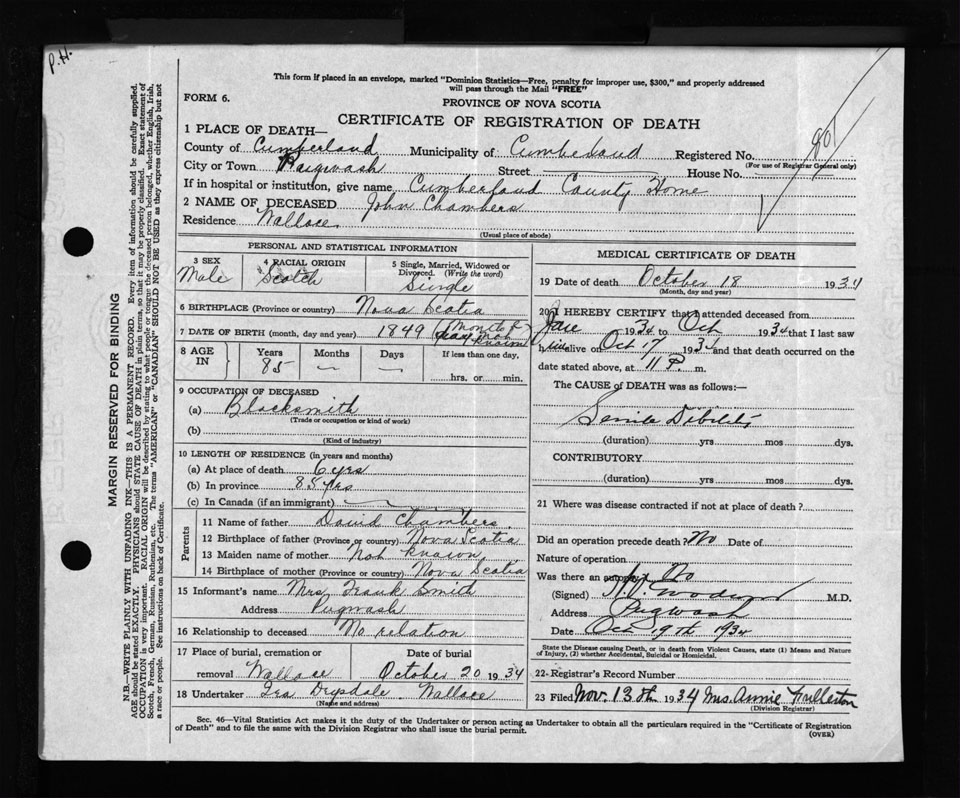 P.H.
This form if placed in an envelope, marked "Dominion Statistics—Free, penalty for improper use, $300," and properly addressed
will pass through the Mail "FREE"
FORM 6.
PROVINCE OF NOVA SCOTIA
CERTIFICATE OF REGISTRATION OF DEATH
1 PLACE OF DEATH—
County of Cumberland Municipality of Cumberland Registered No.
(For use of Registrar General only)
City or Town Pugwash Street House No.
If in hospital or institution, give name Cumberland County Home
2 NAME OF DECEASED John Chambers
Residence Wallace
(Usual place of abode)
PERSONAL AND STATISTICAL INFORMATION
3 SEX Male
4 RACIAL ORIGIN Scotch
5 Single, Married, Widowed or Divorced. (Write the word) Single
6 BIRTHPLACE (Province or country) Nova Scotia
7 DATE OF BIRTH (month, day and year) 1849 (Month & day not known)
8 AGE IN Years 85 Months — Days — If less than one day, hrs. or min.
9 OCCUPATION OF DECEASED
(a) Blacksmith
(Trade or occupation or kind of work)
(b)
(Kind of industry)
10 LENGTH OF RESIDENCE (in years and months)
(a) At place of death 6 yrs
(b) In province 85 yrs
(c) In Canada (if an immigrant)
Parents
11 Name of father David Chambers
12 Birthplace of father (Province or country) Nova Scotia
13 Maiden name of mother Not known
14 Birthplace of mother (Province or country) Nova Scotia
15 Informant's name Mrs Frank Smith
Address Pugwash
16 Relationship to deceased No relation
17 Place of burial, cremation or removal Wallace Date of burial October 20 1934
18 Undertaker Ira Drysdale Wallace
(Name and address)
MEDICAL CERTIFICATE OF DEATH
19 Date of death October 18 1934
(Month, day and year)
20 I HEREBY CERTIFY that I attended deceased from
1934 to Oct 1934 that I last saw
him alive on Oct 17 1934 and that death occurred on the
date stated above, at 11 P. m.
The CAUSE OF DEATH was as follows:—
Senile Debility
(duration) yrs mos dys.
CONTRIBUTORY
(duration) yrs mos dys.
21 Where was disease contracted if not at place of death?
Did an operation precede death? No Date of
Nature of operation
Was there an autopsy No
(Signed) M.D.
Address Pugwash
Date Oct 19th 1934
State the Disease causing Death, or in death from Violent Causes, state (1) Means and Nature
of Injury, (2) whether Accidental, Suicidal or Homicidal.
22 Registrar's Record Number
23 Filed Nov. 13th 1934 Mrs. Annie Fullerton
(Division Registrar)
Sec. 46—Vital Statistics Act makes it the duty of the Undertaker or person acting as Undertaker to obtain all the particulars required in the "Certificate of Registration
of Death" and to file the same with the Division Registrar who shall issue the burial permit.
(OVER)
MARGIN RESERVED FOR BINDING
N.B.—WRITE PLAINLY WITH UNFADING INK—THIS IS A PERMANENT RECORD. Every item of information should be carefully supplied.
AGE should be stated EXACTLY. PHYSICIANS should STATE CAUSE OF DEATH in plain terms, so that it may be properly classified. Exact statement of
OCCUPATION is very important. RACIAL ORIGIN will be described by stating to what people or tongue the deceased person belonged, whether English, Irish,
Scotch, French, German, Russian, Ruthenian, etc. The terms "AMERICAN" or "CANADIAN" SHOULD NOT BE USED as they express citizenship but not
a race or people. See instructions on back of Certificate.